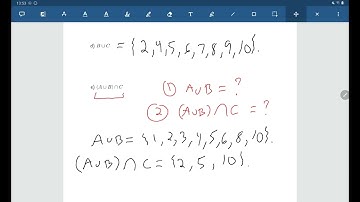 13:53
d) B∪C = {2,4,5,6,7,8,9,10}.
e) (A∪B)∩C
① A∪B = ?
② (A∪B)∩C = ?
A∪B = {1,2,3,4,5,6,8,10}.
(A∪B)∩C = {2,5,10}.